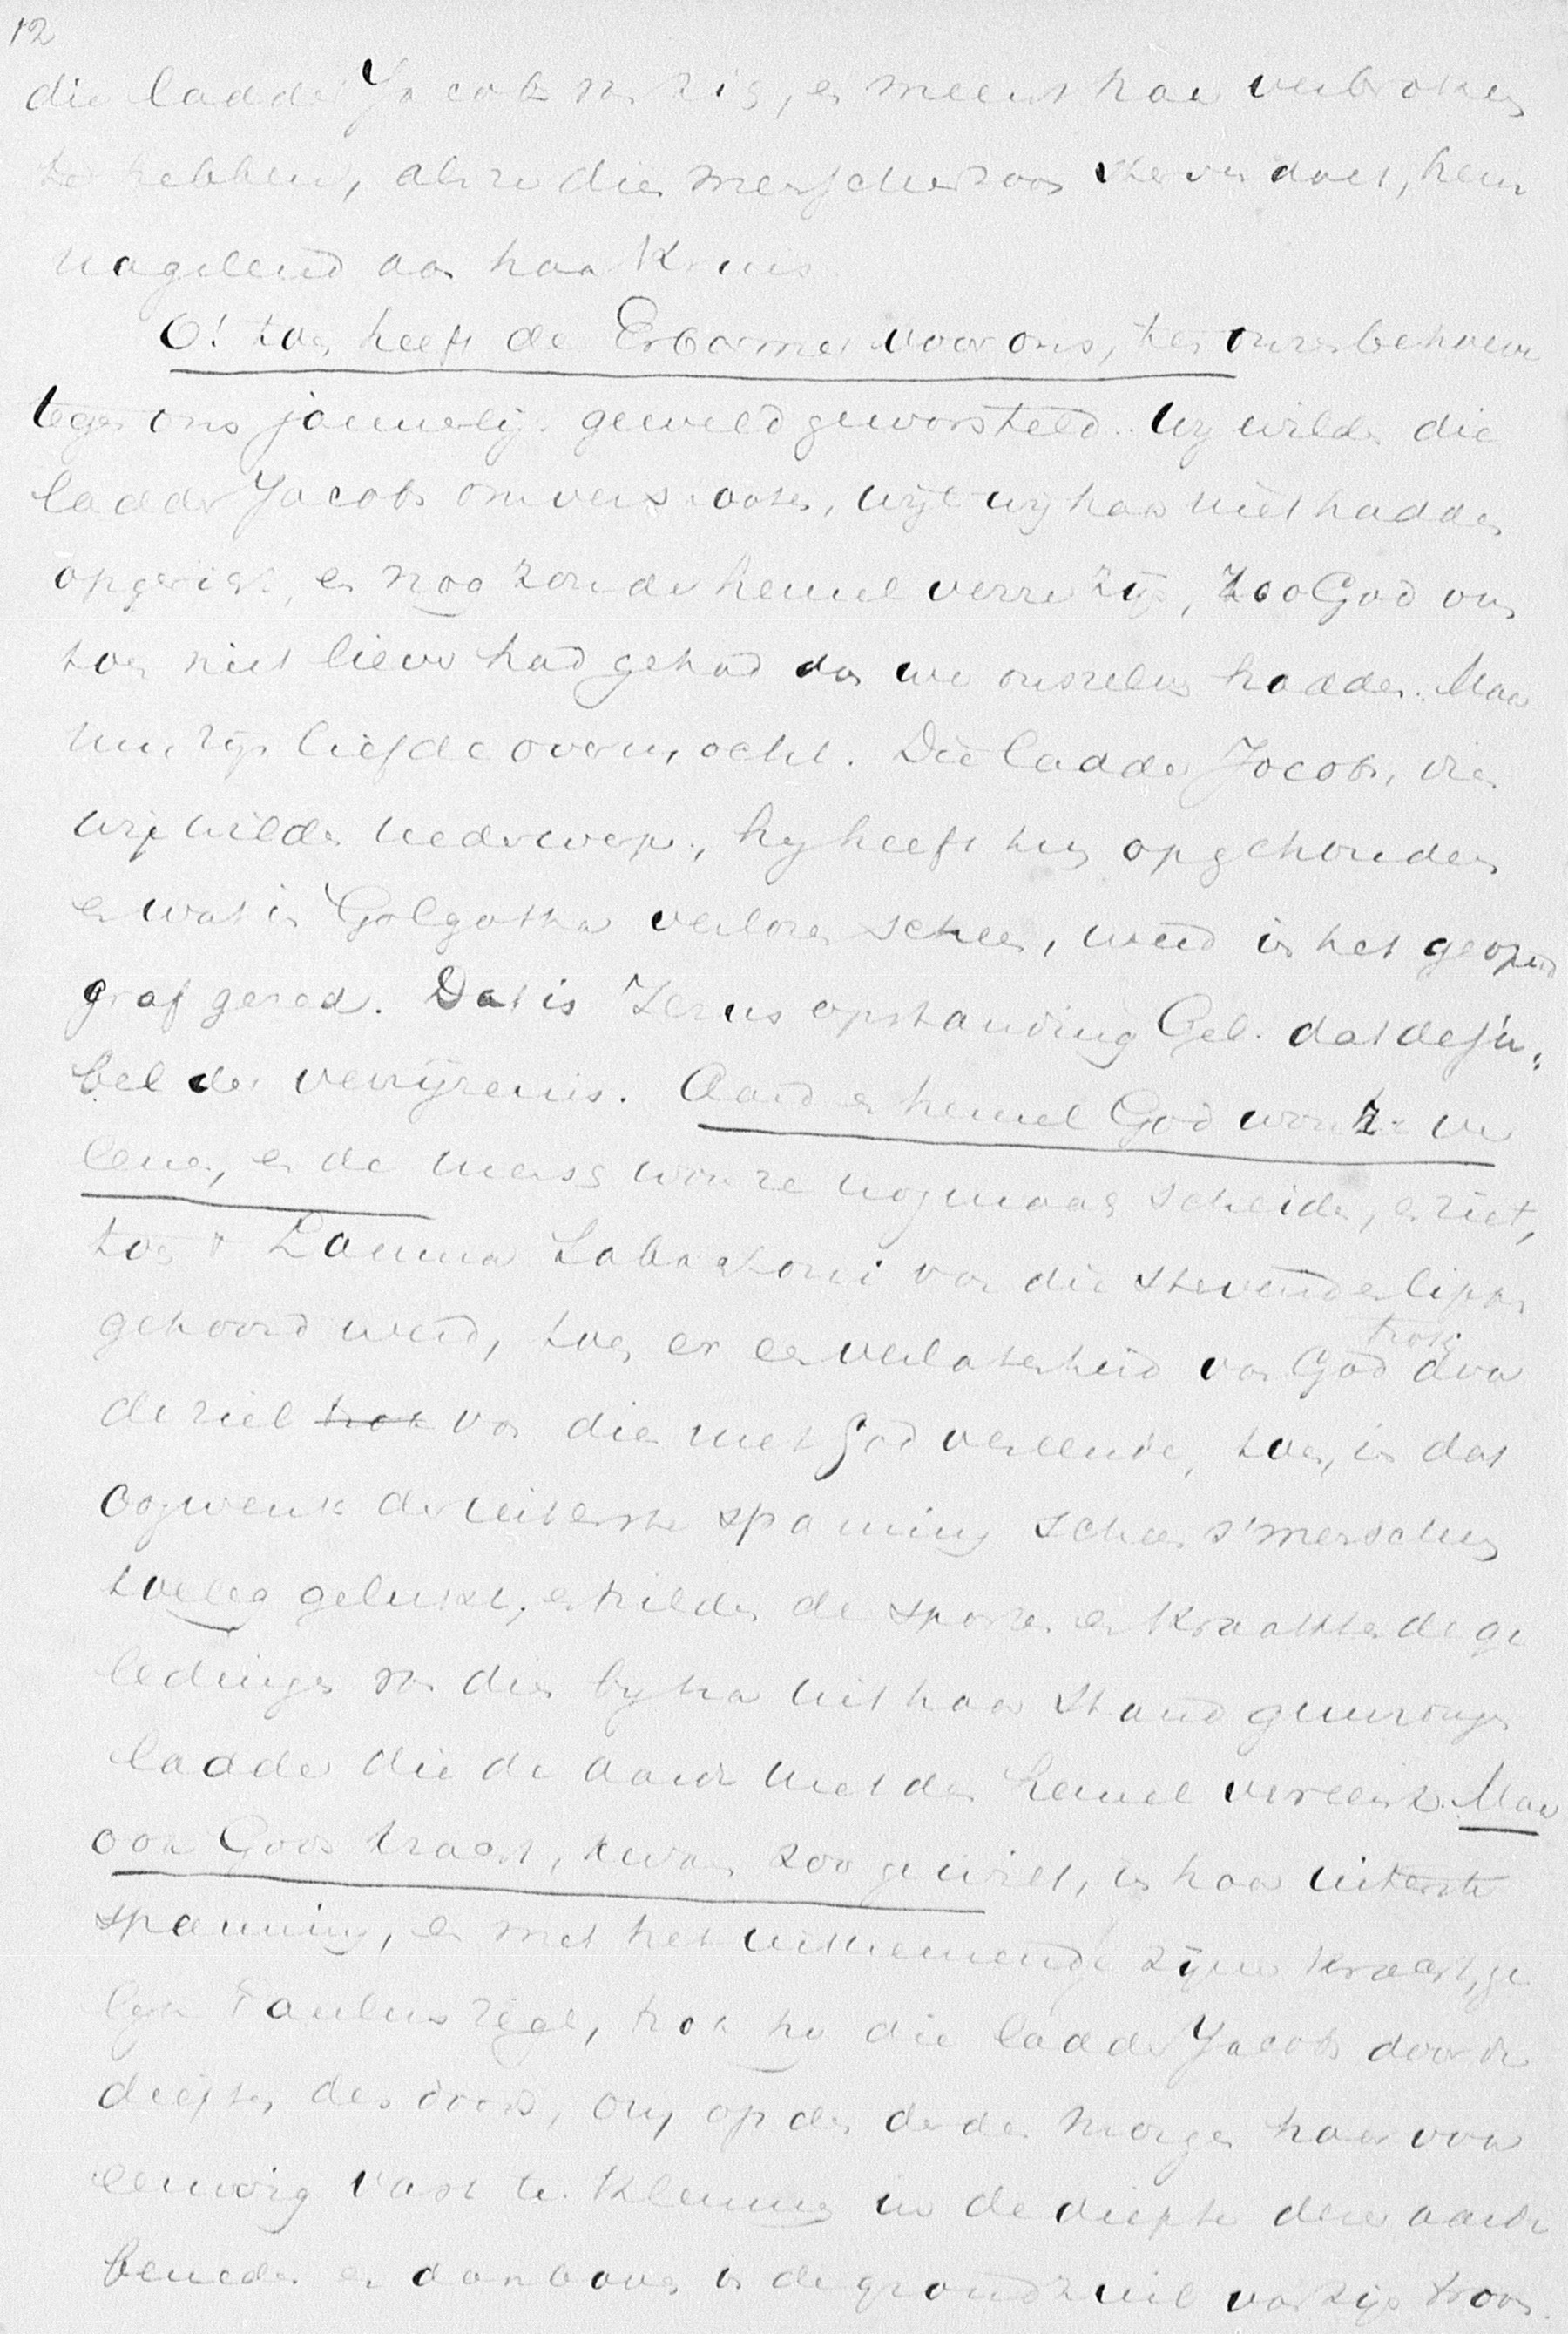 12
die ladder Jacobs van zig, en meent haar verbroken
te hebben, als ze dien menschenzoon sterven doet, hem
nagelend aan haar Kruis.
O! toen heeft de Erbarmer voor ons, ten onzen behoeve
tegen ons jammerlijk geweld geworsteld. Wy wilden die
ladder Jacobs omverstooten, wijl wy haar niet hadden
opgericht, en nog zou de hemel verre zijn, zoo God ons
toen niet liever had gehad dan we onszelven hadden. Maar
neen, zijn liefde overmocht. Die ladder Jacobs, die
wij wilden nederwerpen, hy heeft hem opgehouden
en wat in Golgotha verloren scheen, werd in het geopend
graf gered. Dat is Jezus opstanding Gel. dat de ju-
bel der verrijzenis. Aard en hemel God wou ze ver
eenen, en de mensch wou ze nogmaals scheiden, en ziet,
toen 't Lamma Sabachtani van die stervende lippen
gehoord werd, toen er een verlatenheid van God trok door
de ziel trok van dien met God vereende, toen, in dat
oogwenk der uiterste spanning scheen s'menschen
toeleg gelukt, en trilden de sporten en kraakten de ge
ledingen van die byna uit haar stand gewrongen
ladder die de aarde met den hemel vereent. Maar
ook Gods kracht, kwam zoo ge wilt, in haar uiterste
spanning, en met het uitnemende zijner kracht, ge
lyk Paulus zegt, trok hy die ladder Jacobs door de
diepten des doods, om op den derden morgen haar voor
eeuwig vast te klemmen in de diepte dezer aarde
beneden en daarboven in de grondzuil van zijn troon.